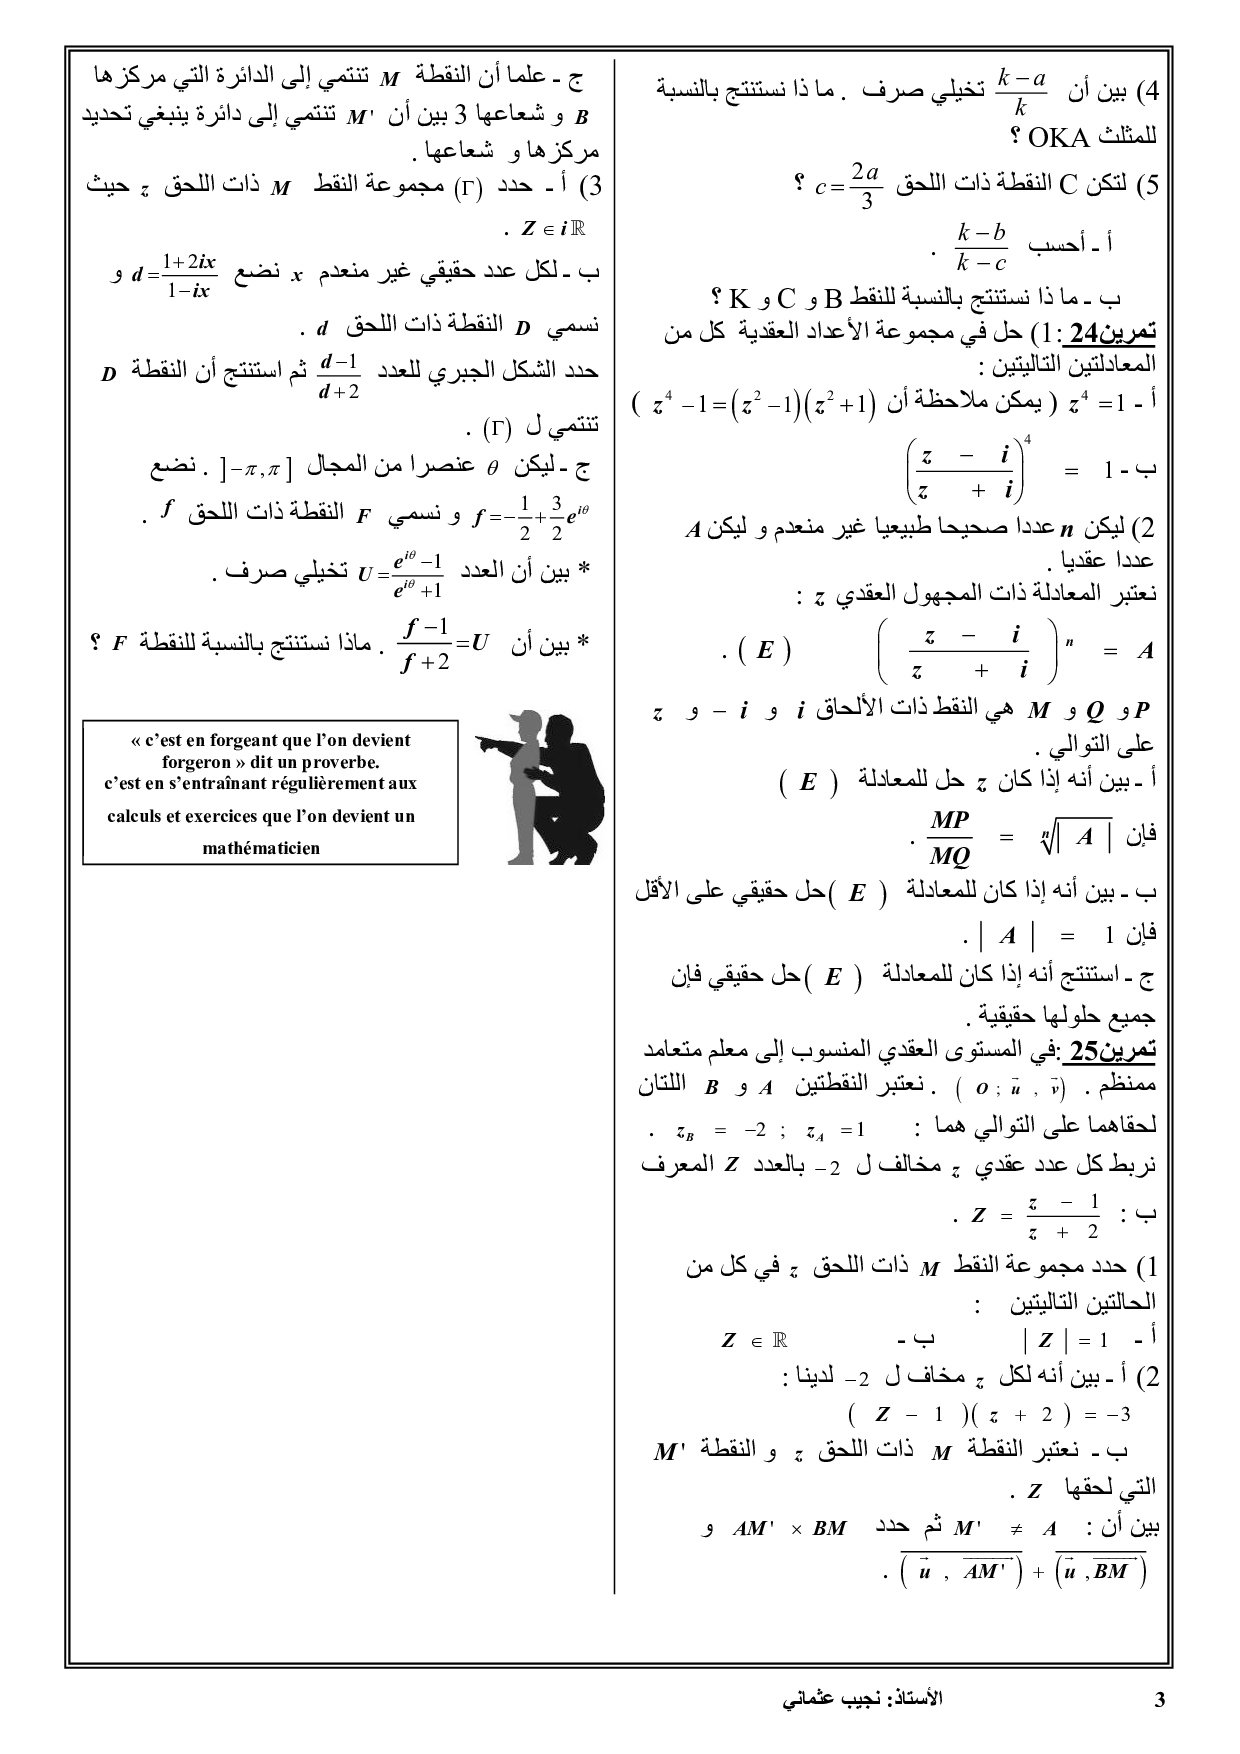 4) بين أن (k − a)/k تخيلي صرف . ما ذا نستنتج بالنسبة
للمثلث OKA ؟
5) لتكن C النقطة ذات اللحق c = 2a/3 ؟
أ ـ أحسب (k − b)/(k − c) .
ب ـ ما ذا نستنتج بالنسبة للنقط B و C و K ؟
تمرين24 :1) حل في مجموعة الأعداد العقدية كل من
المعادلتين التاليتين :
أ ـ z⁴ = 1 ( يمكن ملاحظة أن z⁴ − 1 = (z² − 1)(z² + 1) )
ب ـ ((z − i)/(z + i))⁴ = 1
2) ليكن n عددا صحيحا طبيعيا غير منعدم و ليكن A
عددا عقديا .
نعتبر المعادلة ذات المجهول العقدي z :
((z − i)/(z + i))ⁿ = A ( E ) .
P و Q و M هي النقط ذات الألحاق i و − i و z
على التوالي .
أ ـ بين أنه إذا كان z حل للمعادلة ( E )
فإن MP/MQ = ⁿ√| A | .
ب ـ بين أنه إذا كان للمعادلة ( E ) حل حقيقي على الأقل
فإن | A | = 1 .
ج ـ استنتج أنه إذا كان للمعادلة ( E ) حل حقيقي فإن
جميع حلولها حقيقية .
تمرين25 :في المستوى العقدي المنسوب إلى معلم متعامد
ممنظم . ( O ; u⃗ , v⃗ ) . نعتبر النقطتين A و B اللتان
لحقاهما على التوالي هما : z_B = −2 ; z_A = 1 .
نربط كل عدد عقدي z مخالف ل −2 بالعدد Z المعرف
ب : Z = (z − 1)/(z + 2) .
1) حدد مجموعة النقط M ذات اللحق z في كل من
الحالتين التاليتين :
أ ـ | Z | = 1 ب ـ Z ∈ ℝ
2) أ ـ بين أنه لكل z مخاف ل −2 لدينا :
( Z − 1 )( z + 2 ) = −3
ب ـ نعتبر النقطة M ذات اللحق z و النقطة M'
التي لحقها Z .
بين أن : M' ≠ A ثم حدد AM' × BM و
(u⃗ , AM'⃗) + (u⃗ , BM⃗) .
ج ـ علما أن النقطة M تنتمي إلى الدائرة التي مركزها
B و شعاعها 3 بين أن M' تنتمي إلى دائرة ينبغي تحديد
مركزها و شعاعها .
3) أ ـ حدد (Γ) مجموعة النقط M ذات اللحق z حيث
Z ∈ iℝ .
ب ـ لكل عدد حقيقي غير منعدم x نضع d = (1 + 2ix)/(1 − ix) و
نسمي D النقطة ذات اللحق d .
حدد الشكل الجبري للعدد (d − 1)/(d + 2) ثم استنتج أن النقطة D
تنتمي ل (Γ) .
ج ـ ليكن θ عنصرا من المجال ]−π , π[ . نضع
f = −1/2 + 3/2 e^(iθ) و نسمي F النقطة ذات اللحق f .
* بين أن العدد U = (e^(iθ) − 1)/(e^(iθ) + 1) تخيلي صرف .
* بين أن (f − 1)/(f + 2) = U . ماذا نستنتج بالنسبة للنقطة F ؟
« c'est en forgeant que l'on devient
forgeron » dit un proverbe.
c'est en s'entraînant régulièrement aux
calculs et exercices que l'on devient un
mathématicien
الأستاذ: نجيب عثماني
3